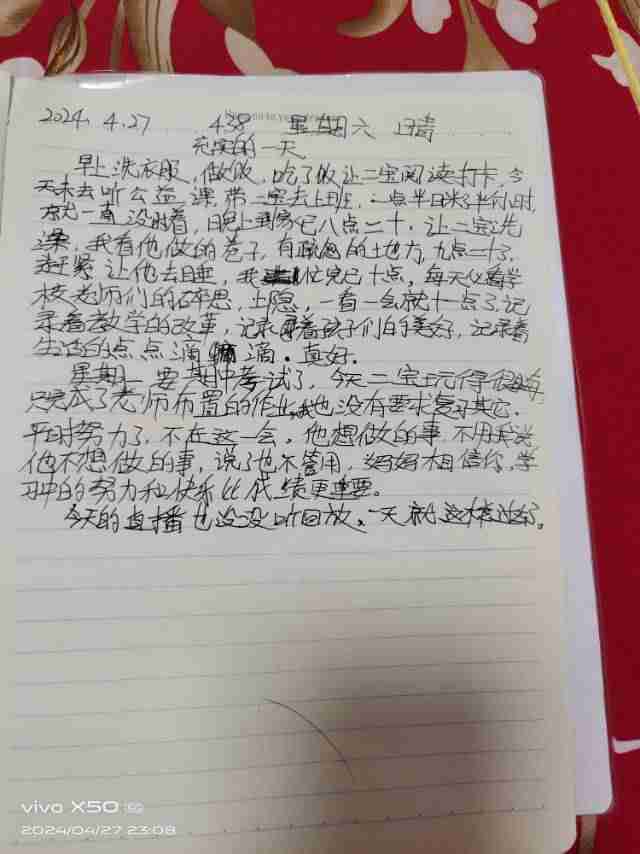 2024. 4.27 438 星期六 晴
充实的一天
早上洗衣服,做饭,吃了饭让二宝阅读打卡,今
天未去听公益课,带二宝去上班,一点半日米了半小时,
就一直没时着,晚上到家已八点二十,让二宝洗
澡,我看他做的卷子,有疏忽的土也方,九点二十了,
赶紧让他去睡,我忙完已十点,每天必看学
校老师们的碎思,上隐,一看一会就十一点了,记
录着教学的改革,记录着孩子们的美好,记录着
生活的点点滴滴。真好。
星期一要期中考试了,今天二宝玩得很嗨,
只完成了老师布置的作业,我也没有要求复习其它.
平时努力了,不在这一会,他想做的事,不用我说
他不想做的事,说了也不管用,妈妈相信你,学
习中的努力和快乐比成绩更重要。
今天的直播也没没听回放、一天就这样过了。
vivo X50 5G
2024/04/27 23:08